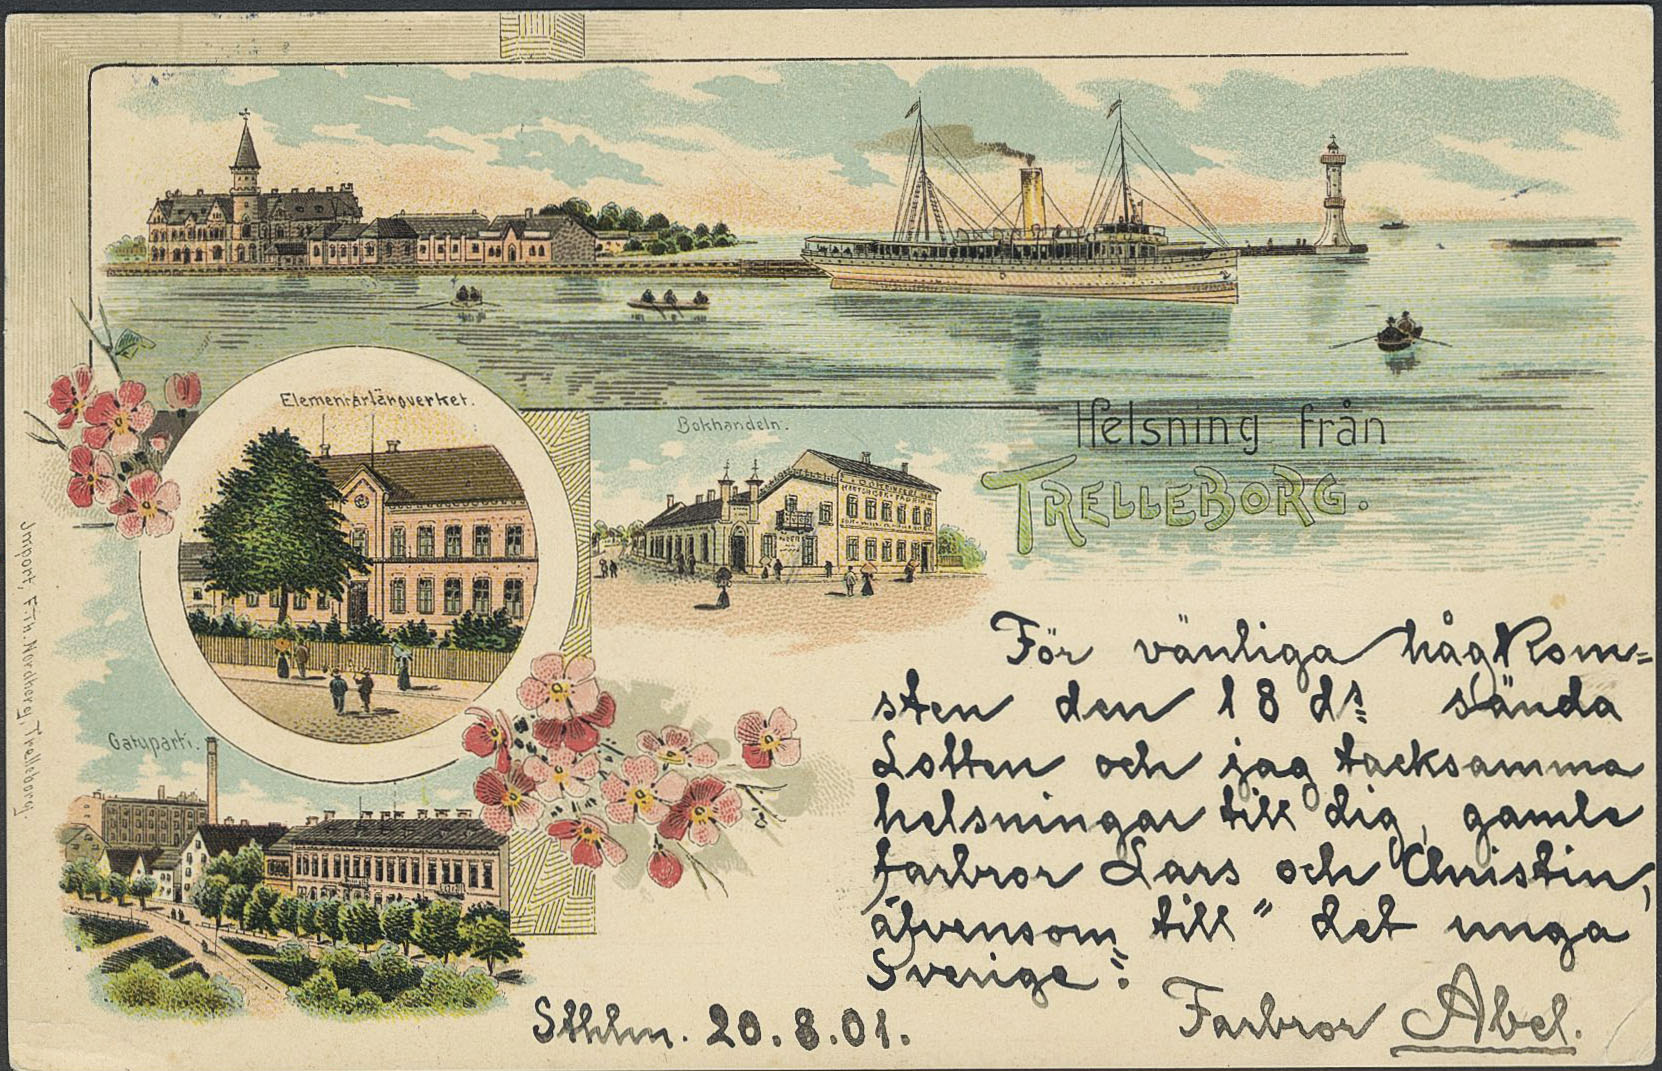 Helsning från
TRELLEBORG.
Elementarläroverket.
Bokhandeln.
Gatuparti.
Import, F. Th. Nordberg, Trelleborg.
För vänliga hågkom=
sten den 18 ds sända
Lotten och jag tacksamma
helsningar till dig, gamle
farbror Lars och Christin,
äfvensom till "det unga
Sverige".
Farbror Abel.
Sthlm. 20.8.01.